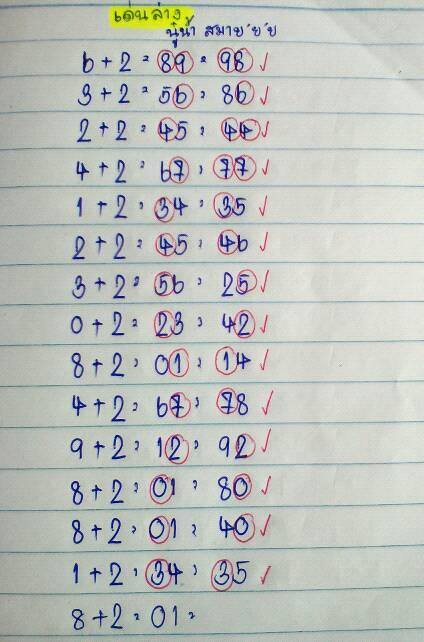 เด่นล่าง
นู๋น้ำ สมาย'ย'ย
6+2=89=98✓
3+2=56=86✓
2+2=45=44✓
4+2=67=77✓
1+2=34=35✓
2+2=45=46✓
3+2=56=25✓
0+2=23=42✓
8+2=01=14✓
4+2=67=78✓
9+2=12=92✓
8+2=01=80✓
8+2=01=40✓
1+2=34=35✓
8+2=01=